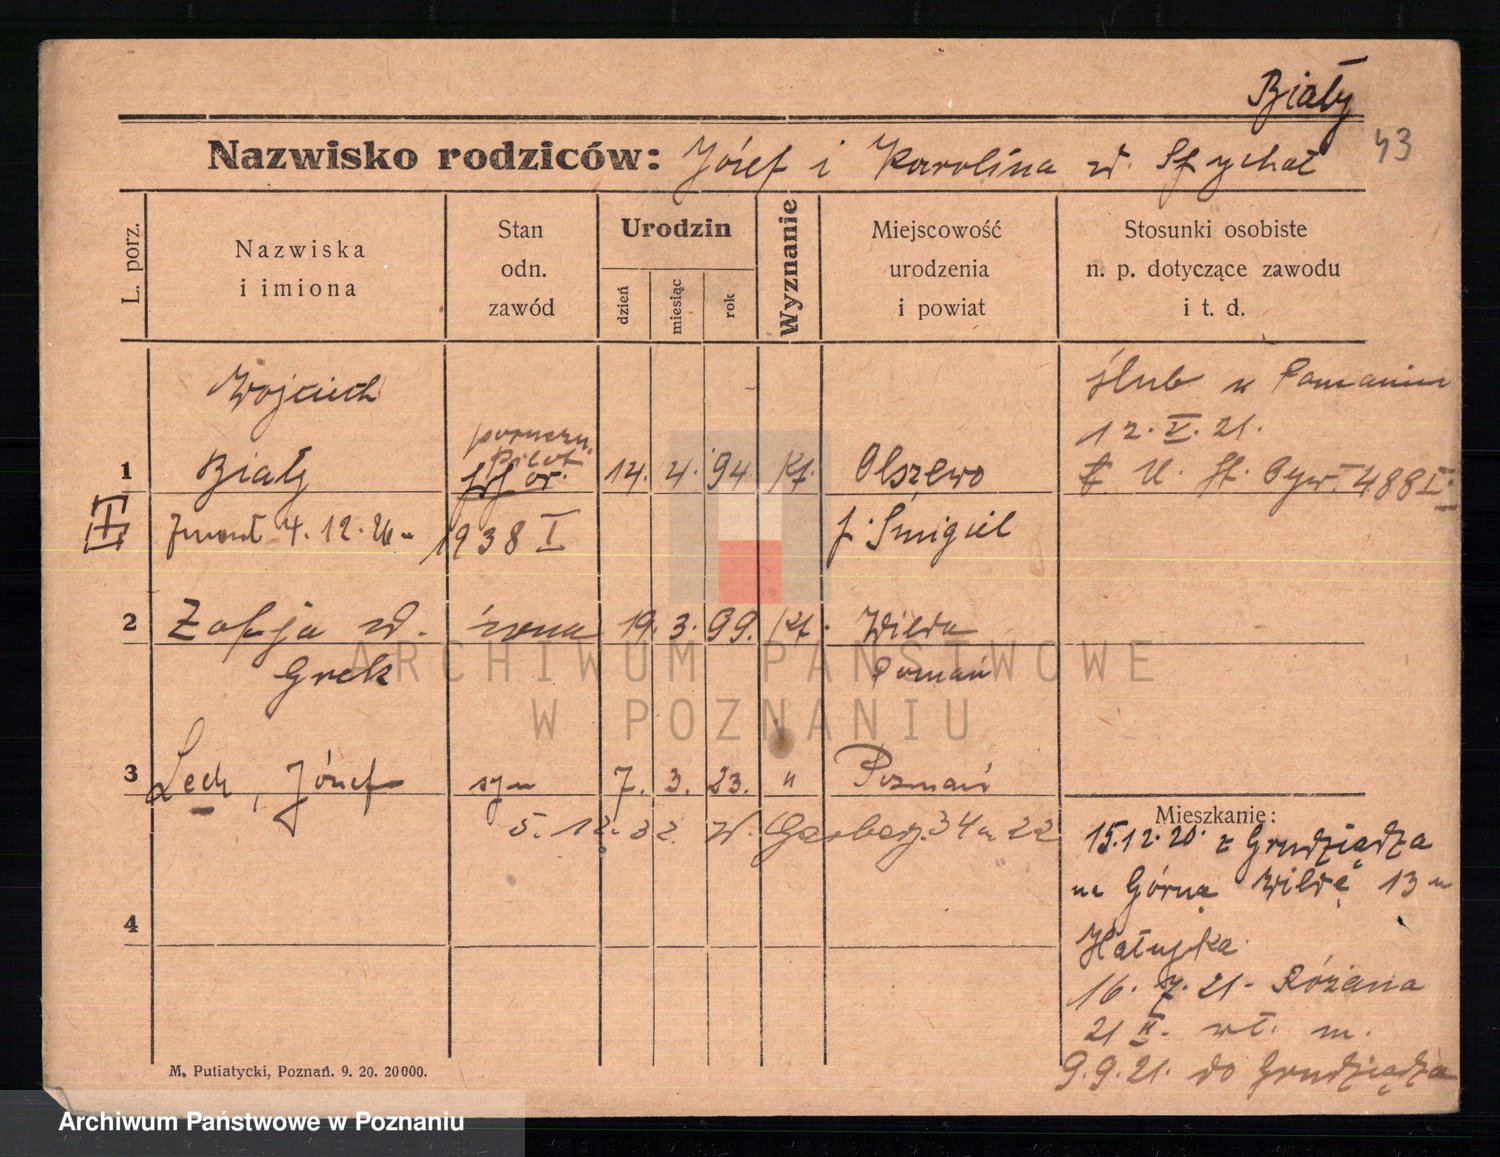 Biały
43
Nazwisko rodziców: Józef i Karolina
L. porz.
Nazwiska
i imiona
Stan
odn.
zawód
Urodzin
dzień
miesiąc
rok
Wyznanie
Miejscowość
urodzenia
i powiat
Stosunki osobiste
n. p. dotyczące zawodu
i t. d.
Wojciech
ślub w Poznaniu
12. V. 21.
1 Biały
Pilot
14. 4. 94 Kt. Olszewo
488 I
zmarł 4. 12. 26
1938 I
Śmigiel
2 Zofja
żona 19. 3. 99. Kt. Wilda
Grek
Poznań
ARCHIWUM PAŃSTWOWE
W POZNANIU
3 Lech, Józef syn 7. 3. 23. " Poznań
5. 12. 32. W. Garbary 34 m 22
Mieszkanie:
15.12.20. z Grudziądza
na Górną Wildę 13
16. 7. 21. Różana
21 wł. m.
9.9.21. do Grudziądza
4
M. Putiatycki, Poznań. 9. 20. 20000.
Archiwum Państwowe w Poznaniu